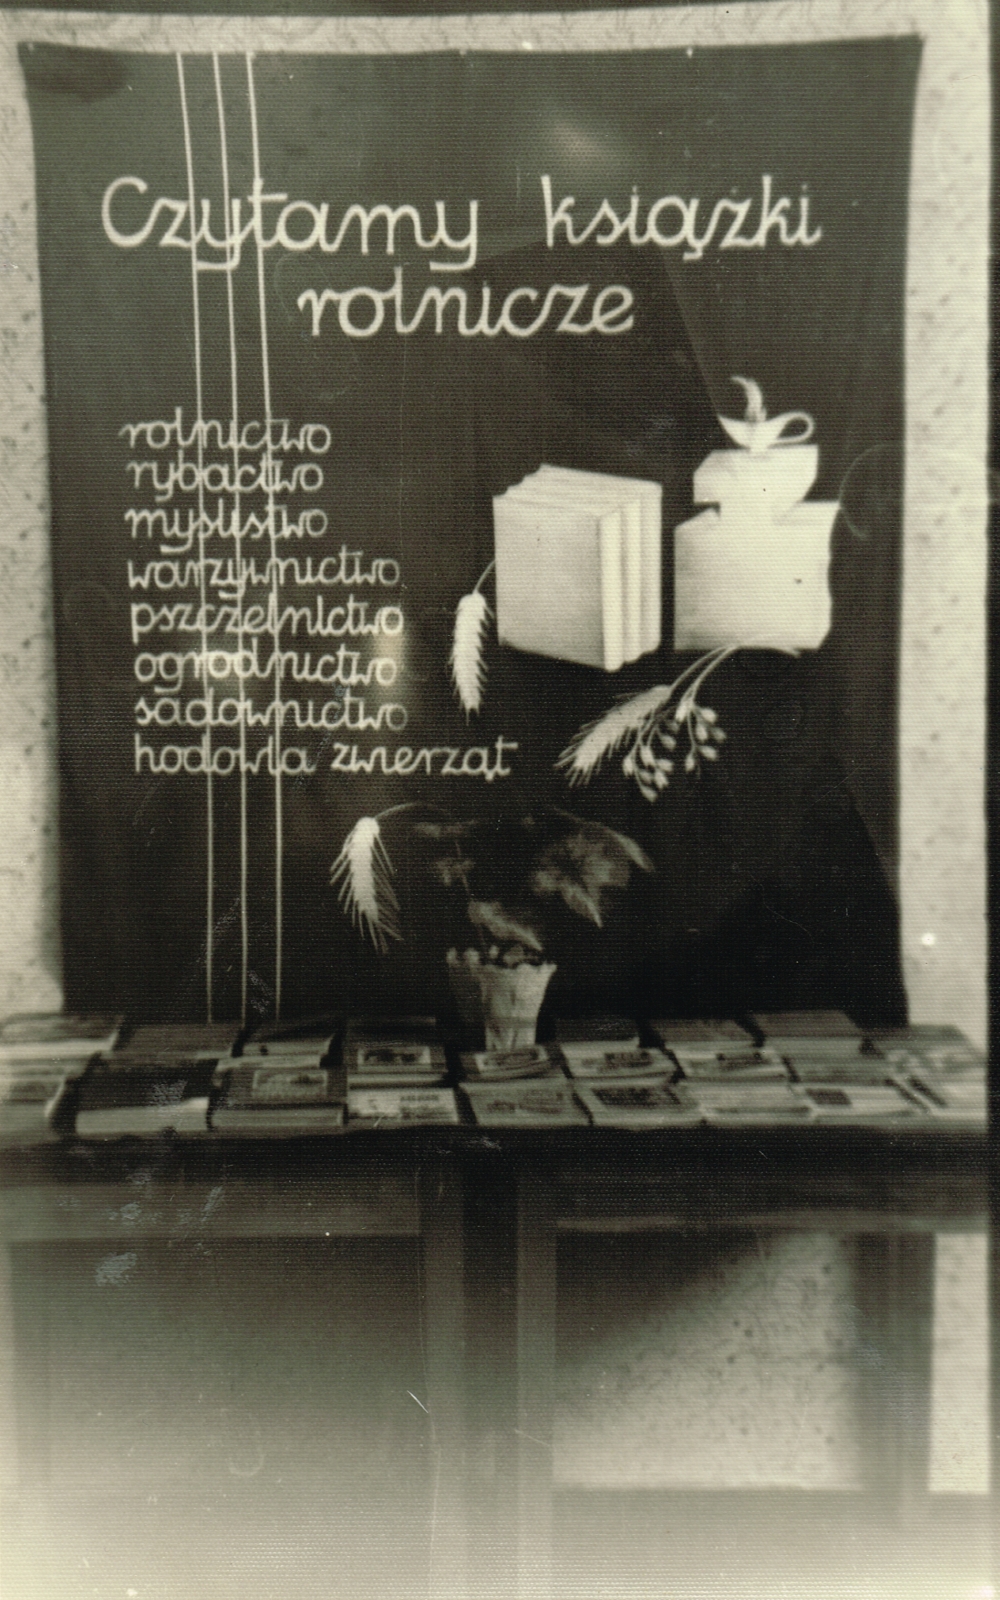 Czytamy książki
rolnicze
rolnictwo
rybactwo
myslistwo
warzywnictwo
pszczelnictwo
ogrodnictwo
sadownictwo
hodowla zwierząt